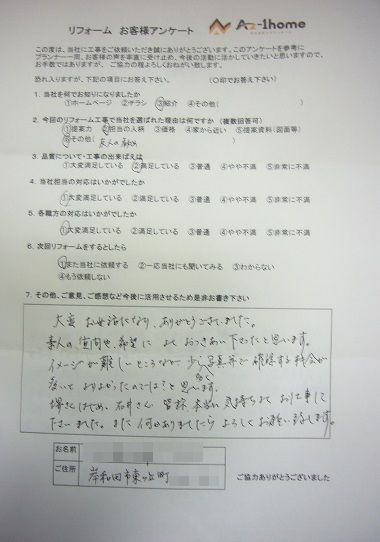 リフォーム お客様アンケート
Az-1home
この度は、当社に工事をご依頼いただき誠にありがとうございます。このアンケートを参考に
プランナー一同、お客様の声を率直に受け止め、今後の活動に活かしていきたいと思いますので、
お手数ではありますが、ご協力の程よろしくおねがい致します。
恐れ入りますが、下記の項目にお答え下さい。 (○印でお答え下さい)
1. 当社を何でお知りになりましたか
①ホームページ ②チラシ ③紹介 ④その他( )
2. 今回のリフォーム工事で当社を選ばれた理由は何ですか (複数回答可)
①提案力 ②担当の人柄 ③価格 ④家から近い ⑤提案資料(図面等)
⑥その他( 友人の )
3. 品質について・工事の出来ばえは
①大変満足している ②満足している ③普通 ④やや不満 ⑤非常に不満
4. 当社担当の対応はいかがでしたか
①大変満足している ②満足している ③普通 ④やや不満 ⑤非常に不満
5. 各職方の対応はいかがでしたか
①大変満足している ②満足している ③普通 ④やや不満 ⑤非常に不満
6. 次回リフォームをするとしたら
①また当社に依頼する ②一応当社にも聞いてみる ③わからない
④もう依頼しない
7. その他、ご意見、ご感想など今後に活用させるため是非お書き下さい
大変 お世話になり、ありがとうございました。
素人の 質問や、希望に よく おつきあい下さったと思います。
イメージが難しいところなど 少し 写真等で 確認する 機会が
多く
あって よりよかったのでは?と 思います。
堺さんはじめ、石井さん 皆様 本当に 気持ちよく お仕事して
下さいました。また 何かありましたら よろしくお願い致します。
お名前
ご住所 岸和田市東ヶ丘町
ご協力ありがとうございました